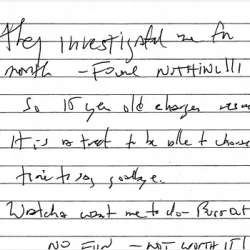 They investigated me for
month - FOUND NOTHING!!!
So 15 year old charges
It is a treat to be able to choose
time to say goodbye.
Watcha want me to do -
NO FUN - NOT WORTH IT!